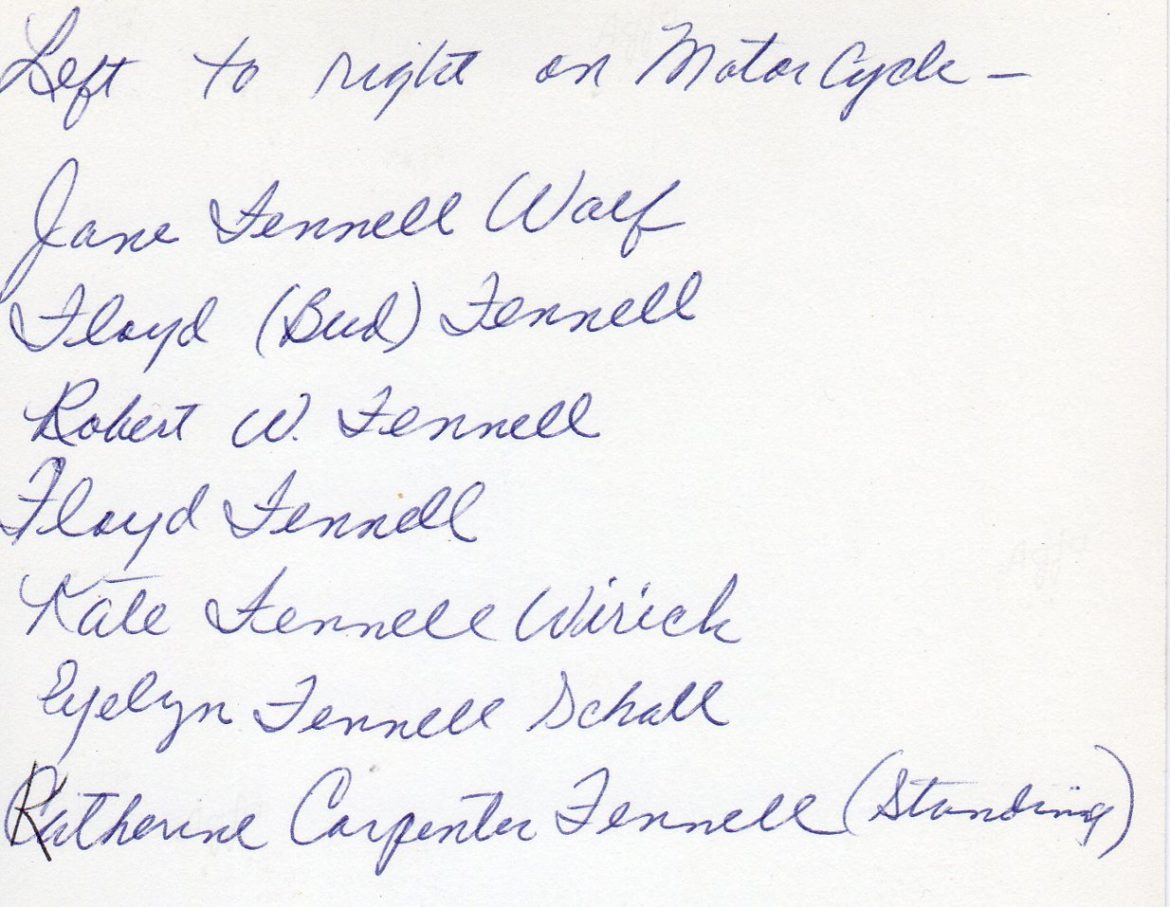 Left to right on MotorCycle –
Jane Fennell Wolf
Floyd (Bud) Fennell
Robert W. Fennell
Floyd Fennell
Kate Fennell Wirick
Eyelyn Fennell Schall
Katherine Carpenter Fennell (Standing)